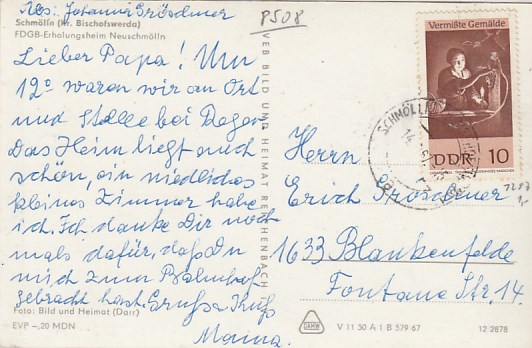 Abs: Johanna Gröschner
Schmölln (Kr. Bischofswerda)
FDGB-Erholungsheim Neuschmölln
P508
Lieber Papa! Um
12° waren wir an Ort
und Stelle bei Regen.
Das Heim liegt auch
schön, ein niedliches
kleines Zimmer habe
ich. Ich danke Dir noch
mals dafür, daß Du
mich zum Bahnhof
gebracht hast. Gruß u Kuß
Mama.
Foto: Bild und Heimat (Darr)
EVP -,20 MDN
VEB BILD UND HEIMAT REICHENBACH
Vermißte Gemälde
DDR 10
SCHMÖLLN
Herrn
Erich Gröschner
1633 Blankenfelde
Fontane Str. 14.
V 11 50 A 1 B 579 67
12 2878